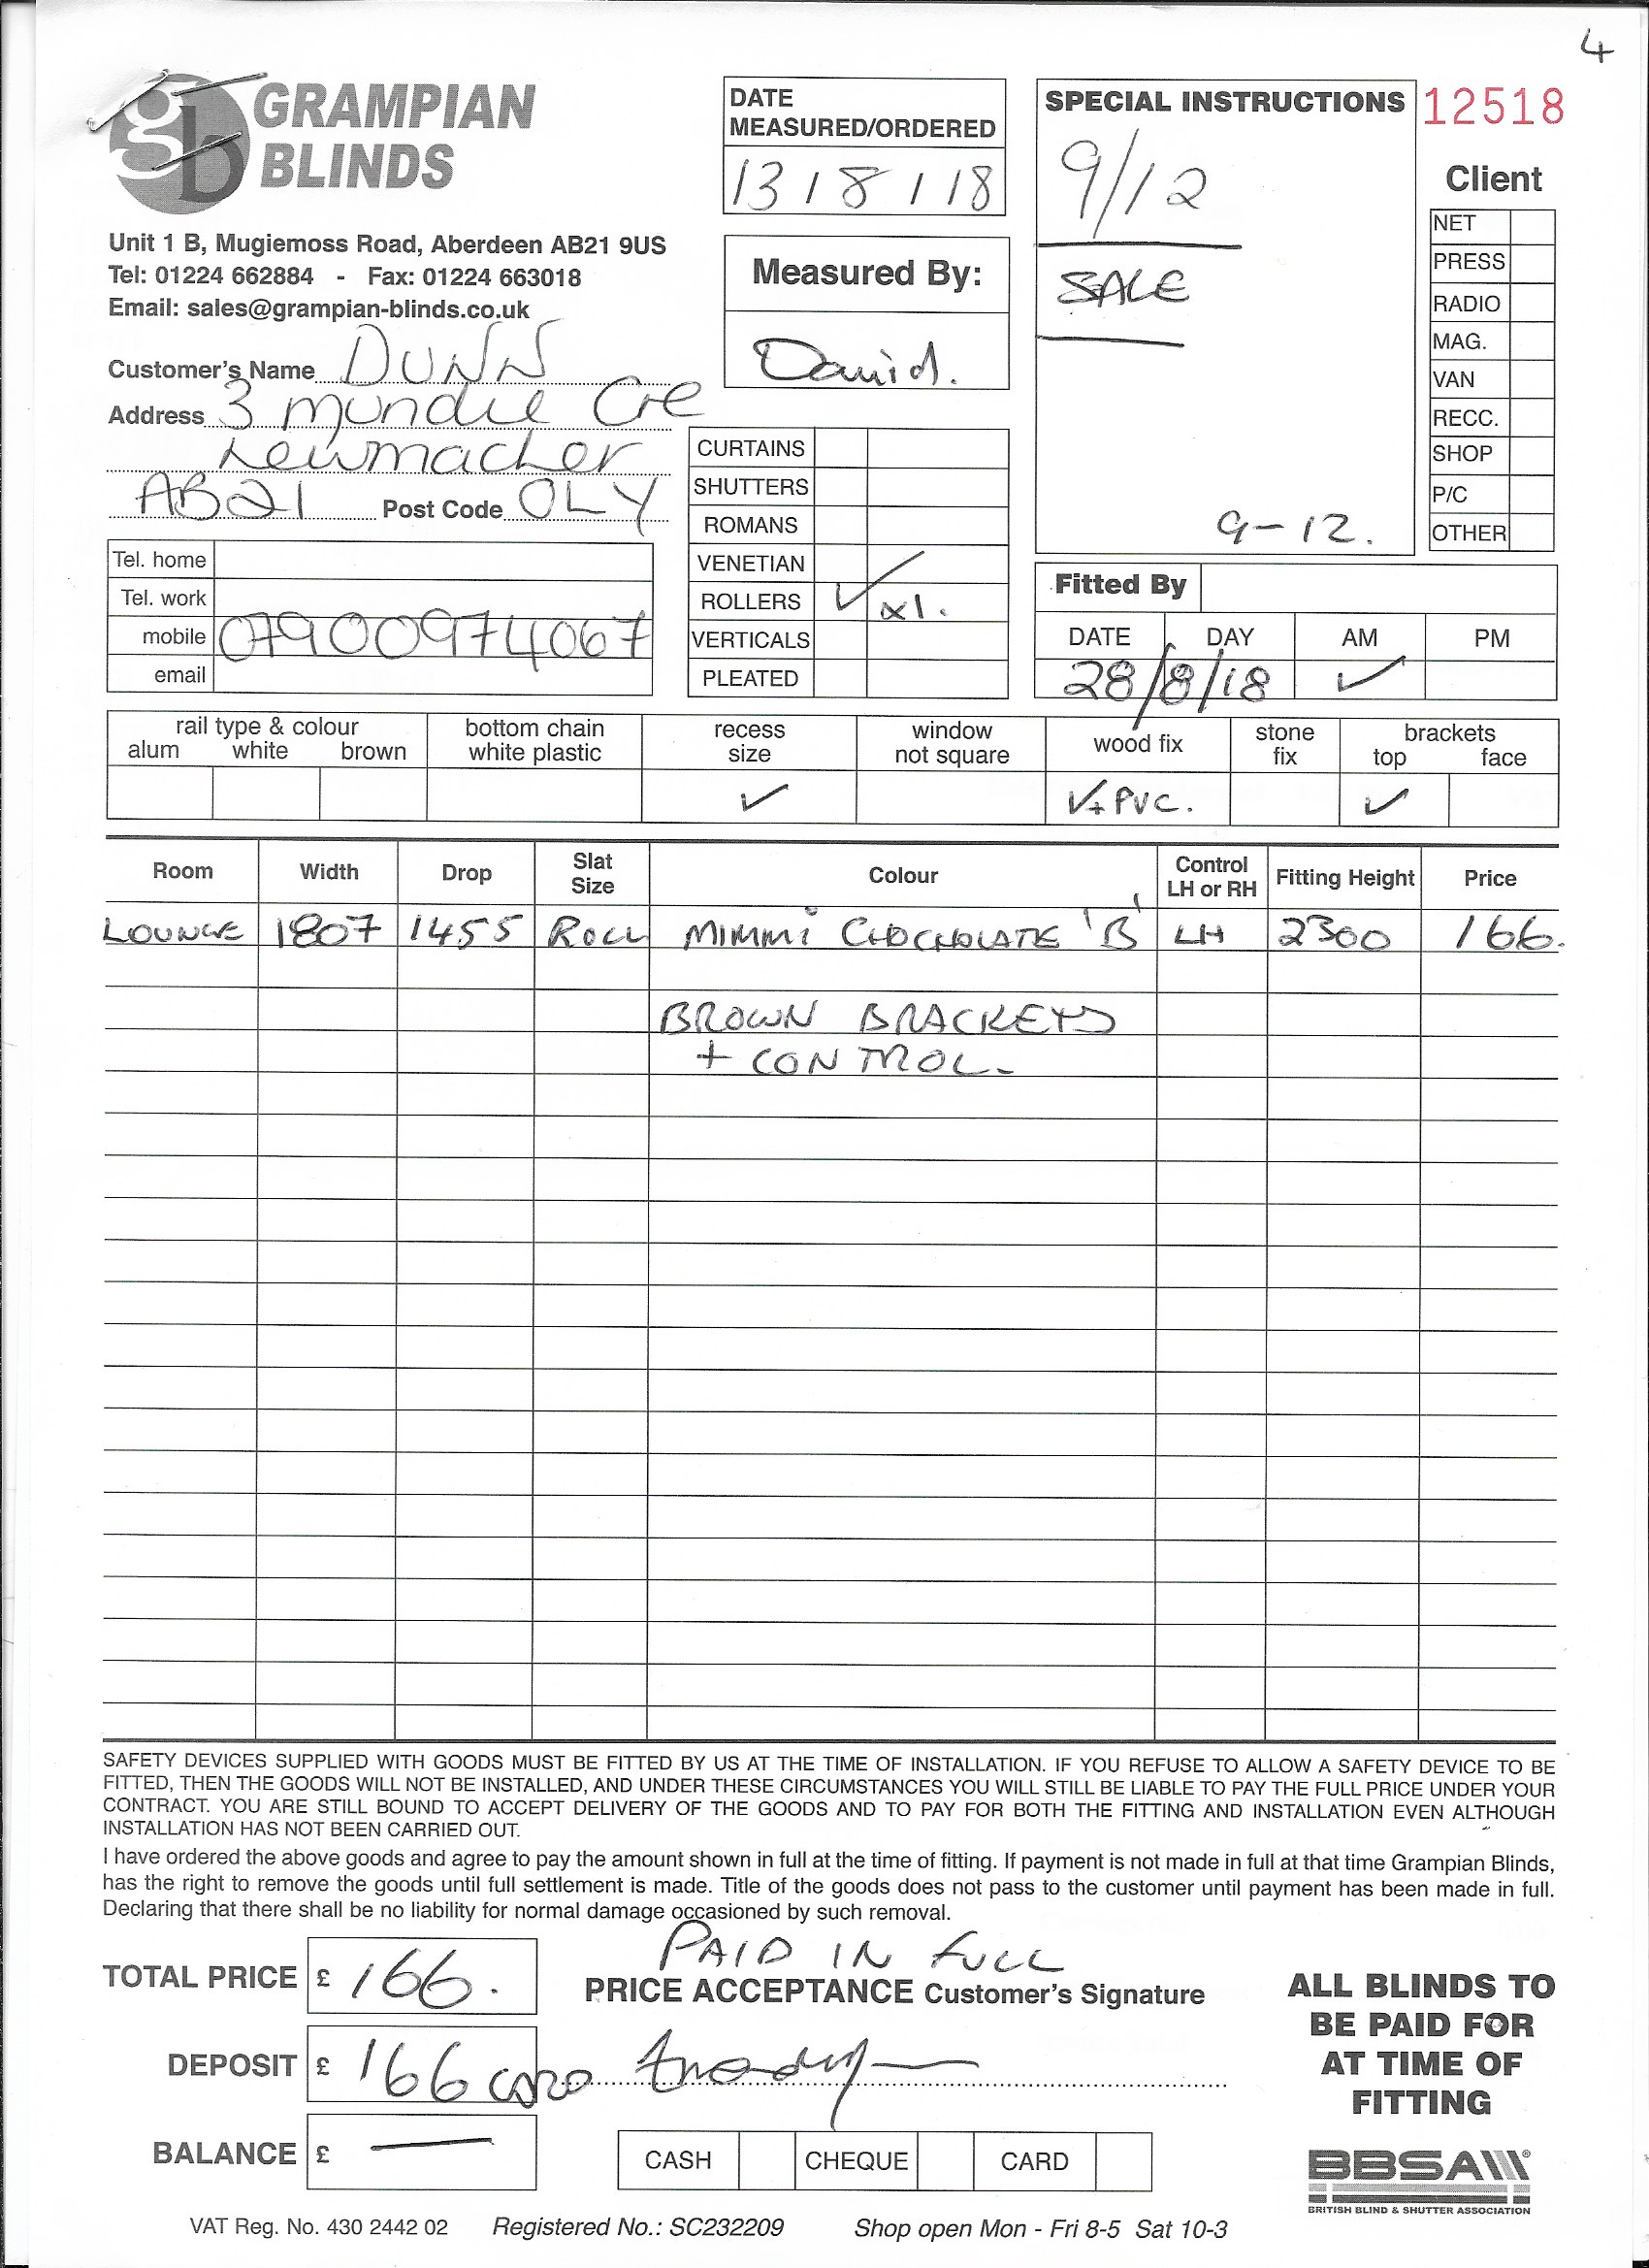 4
GRAMPIAN
BLINDS
Unit 1 B, Mugiemoss Road, Aberdeen AB21 9US
Tel: 01224 662884 - Fax: 01224 663018
Email: sales@grampian-blinds.co.uk
DATE
MEASURED/ORDERED
13/8/18
Measured By:
David.
SPECIAL INSTRUCTIONS
9/12
SALE
9-12.
12518
Client
NET
PRESS
RADIO
MAG.
VAN
RECC.
SHOP
P/C
OTHER
Customer's Name DUNN
Address 3 mundie Cre
Newmacher
AB21 Post Code OLY
Tel. home
Tel. work
mobile 07900974067
email
CURTAINS
SHUTTERS
ROMANS
VENETIAN
ROLLERS ✓ x1.
VERTICALS
PLEATED
Fitted By
DATE DAY AM PM
28/8/18 ✓
rail type & colour
alum white brown
bottom chain
white plastic
recess
size
window
not square
wood fix
stone
fix
brackets
top face
✓ ✓+PVC. ✓
Room Width Drop Slat Size Colour Control LH or RH Fitting Height Price
LOUNGE 1807 1455 ROLL MIMMI CHOCHOLATE 'B' LH 2300 166.
BROWN BRACKETS
+ CONTROL
SAFETY DEVICES SUPPLIED WITH GOODS MUST BE FITTED BY US AT THE TIME OF INSTALLATION. IF YOU REFUSE TO ALLOW A SAFETY DEVICE TO BE
FITTED, THEN THE GOODS WILL NOT BE INSTALLED, AND UNDER THESE CIRCUMSTANCES YOU WILL STILL BE LIABLE TO PAY THE FULL PRICE UNDER YOUR
CONTRACT. YOU ARE STILL BOUND TO ACCEPT DELIVERY OF THE GOODS AND TO PAY FOR BOTH THE FITTING AND INSTALLATION EVEN ALTHOUGH
INSTALLATION HAS NOT BEEN CARRIED OUT.
I have ordered the above goods and agree to pay the amount shown in full at the time of fitting. If payment is not made in full at that time Grampian Blinds,
has the right to remove the goods until full settlement is made. Title of the goods does not pass to the customer until payment has been made in full.
Declaring that there shall be no liability for normal damage occasioned by such removal.
PAID IN FULL
TOTAL PRICE £ 166.
PRICE ACCEPTANCE Customer's Signature
DEPOSIT £ 166 CARD
BALANCE £ —
CASH CHEQUE CARD
ALL BLINDS TO
BE PAID FOR
AT TIME OF
FITTING
BBSA
BRITISH BLIND & SHUTTER ASSOCIATION
VAT Reg. No. 430 2442 02 Registered No.: SC232209 Shop open Mon - Fri 8-5 Sat 10-3